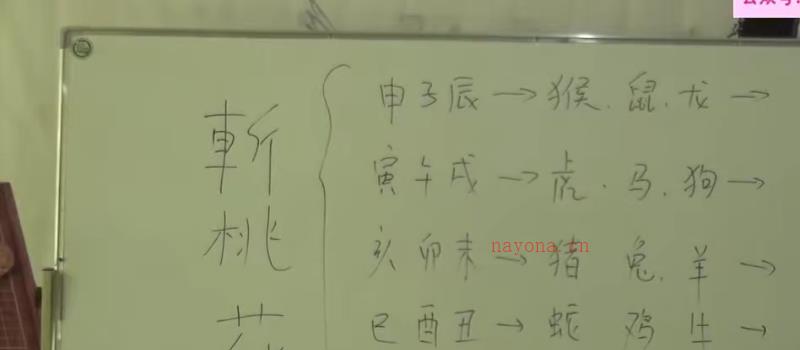 斬桃花
申子辰→猴.鼠.龙→
寅午戌→虎.马.狗→
亥卯未→猪 兔.羊→
巳酉丑→蛇 鸡 牛→
nayona.cn